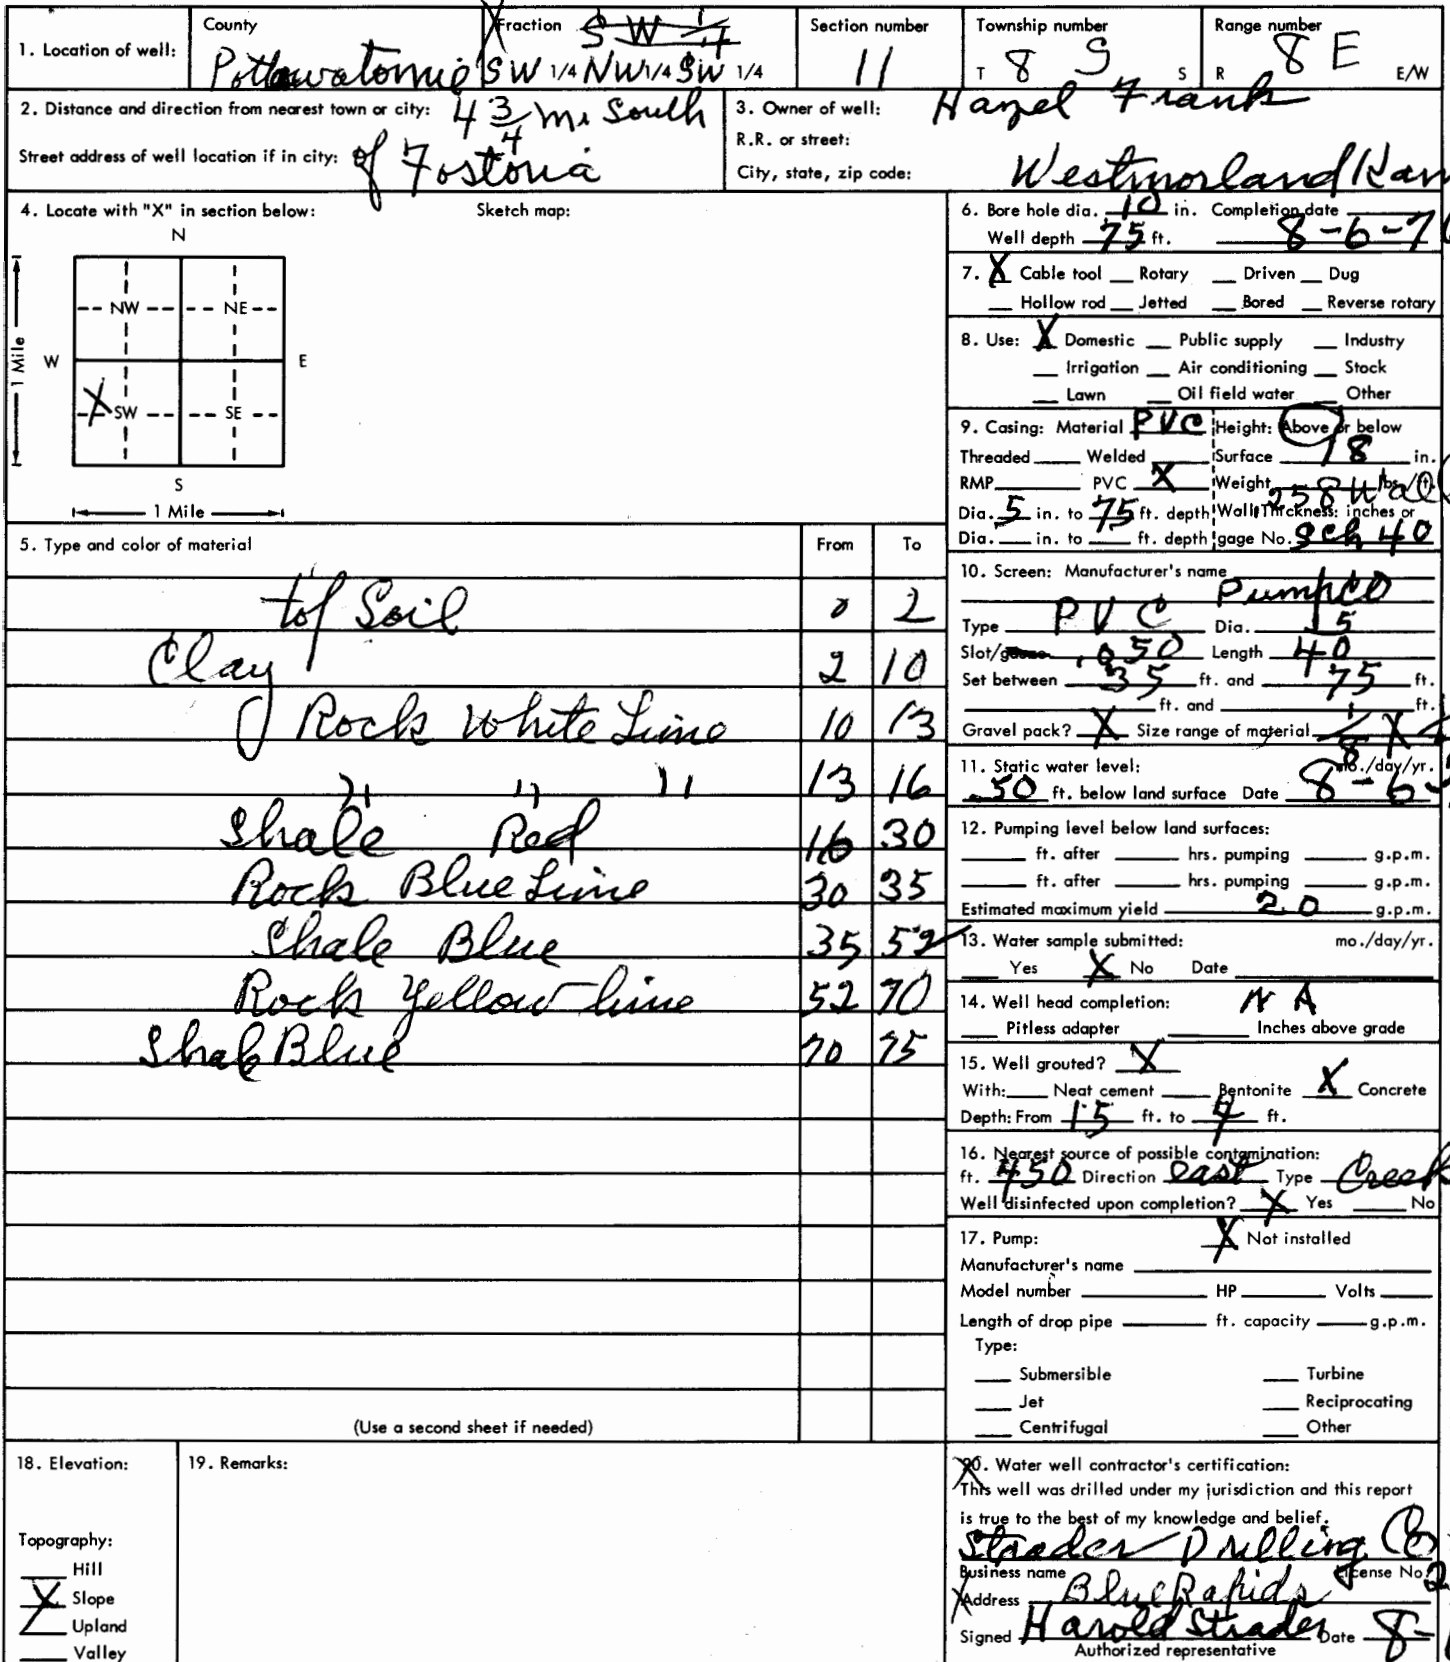 1. Location of well: County Pottawatomie Fraction SW 1/4 SW 1/4 NW 1/4 SW 1/4 Section number 11 Township number T 8 S S Range number R 8 E E/W
2. Distance and direction from nearest town or city: 4 3/4 mi South
Street address of well location if in city: of Fostoria
3. Owner of well: Hazel Frank
R.R. or street:
City, state, zip code: Westmorland Kan
4. Locate with "X" in section below: Sketch map:
N
NW NE
W E
X SW SE
S
1 Mile
1 Mile
5. Type and color of material From To
top Soil 0 2
Clay 2 10
Rock White Lime 10 13
" " " 13 16
Shale Red 16 30
Rock Blue Lime 30 35
Shale Blue 35 52
Rock Yellow lime 52 70
Shale Blue 70 75
(Use a second sheet if needed)
6. Bore hole dia. 10 in. Completion date
Well depth 75 ft. 8-6-7
7. X Cable tool Rotary Driven Dug
Hollow rod Jetted Bored Reverse rotary
8. Use: X Domestic Public supply Industry
Irrigation Air conditioning Stock
Lawn Oil field water Other
9. Casing: Material PVC Height: Above or below
Threaded Welded Surface 18 in.
RMP PVC X Weight lbs./ft.
Dia. 5 in. to 75 ft. depth Wall Thickness: inches or .258 Wall
Dia. in. to ft. depth gage No. Sch 40
10. Screen: Manufacturer's name
Pumpco
Type PVC Dia. 5
Slot/gauze .050 Length 40
Set between 35 ft. and 75 ft.
ft. and ft.
Gravel pack? X Size range of material
11. Static water level: mo./day/yr.
50 ft. below land surface Date 8-6-
12. Pumping level below land surfaces:
ft. after hrs. pumping g.p.m.
ft. after hrs. pumping g.p.m.
Estimated maximum yield 20 g.p.m.
13. Water sample submitted: mo./day/yr.
Yes X No Date
14. Well head completion: NA
Pitless adapter Inches above grade
15. Well grouted? X
With: Neat cement Bentonite X Concrete
Depth: From 15 ft. to 4 ft.
16. Nearest source of possible contamination:
ft. 450 Direction east Type Creek
Well disinfected upon completion? X Yes No
17. Pump: X Not installed
Manufacturer's name
Model number HP Volts
Length of drop pipe ft. capacity g.p.m.
Type:
Submersible Turbine
Jet Reciprocating
Centrifugal Other
18. Elevation:
Topography:
Hill
X Slope
Upland
Valley
19. Remarks:
20. Water well contractor's certification:
This well was drilled under my jurisdiction and this report
is true to the best of my knowledge and belief.
Strader Drilling Co
Business name License No. 2
Address Blue Rapids
Signed Harold Strader Date 8-
Authorized representative